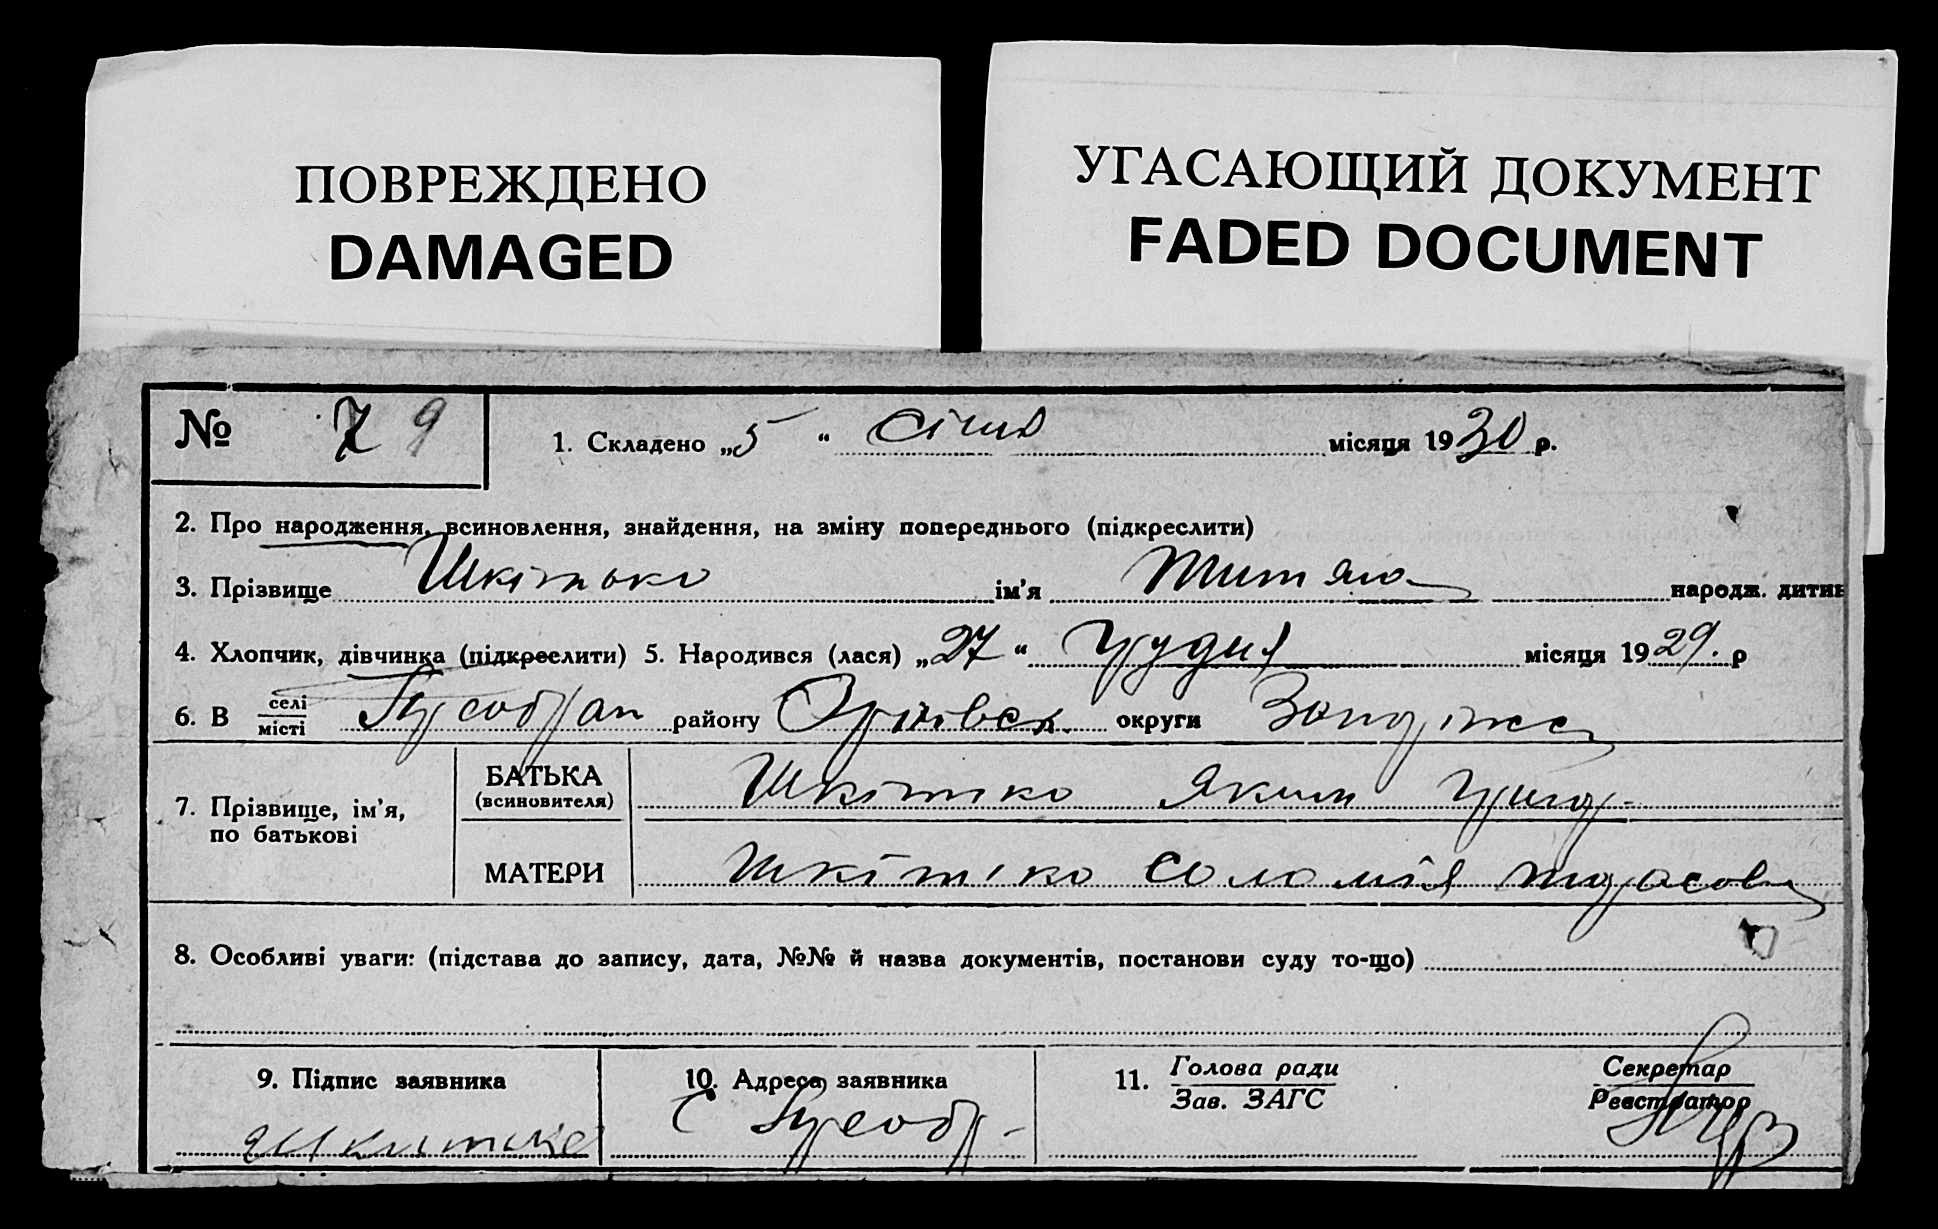 ПОВРЕЖДЕНО
DAMAGED
УГАСАЮЩИЙ ДОКУМЕНТ
FADED DOCUMENT
№ 7 9
1. Складено „5“ Січня місяця 1930 р.
2. Про народження, всиновлення, знайдення, на зміну попереднього (підкреслити)
3. Прізвище Шкітько ім'я народж. дитин
4. Хлопчик, дівчинка (підкреслити) 5. Народився (лася) „27“ Грудня місяця 1929. р
6. В селі місті району Оріхівск. округи Запоріжс
7. Прізвище, ім'я, по батькові
БАТЬКА (всиновителя) Шкітько Яким Григор.
МАТЕРИ Шкітько Соломія Тарасов
8. Особливі уваги: (підстава до запису, дата, №№ й назва документів, постанови суду то-що)
9. Підпис заявника
10. Адреса заявника
11. Голова ради
Зав. ЗАГС
Секретар
Реєстратор
с